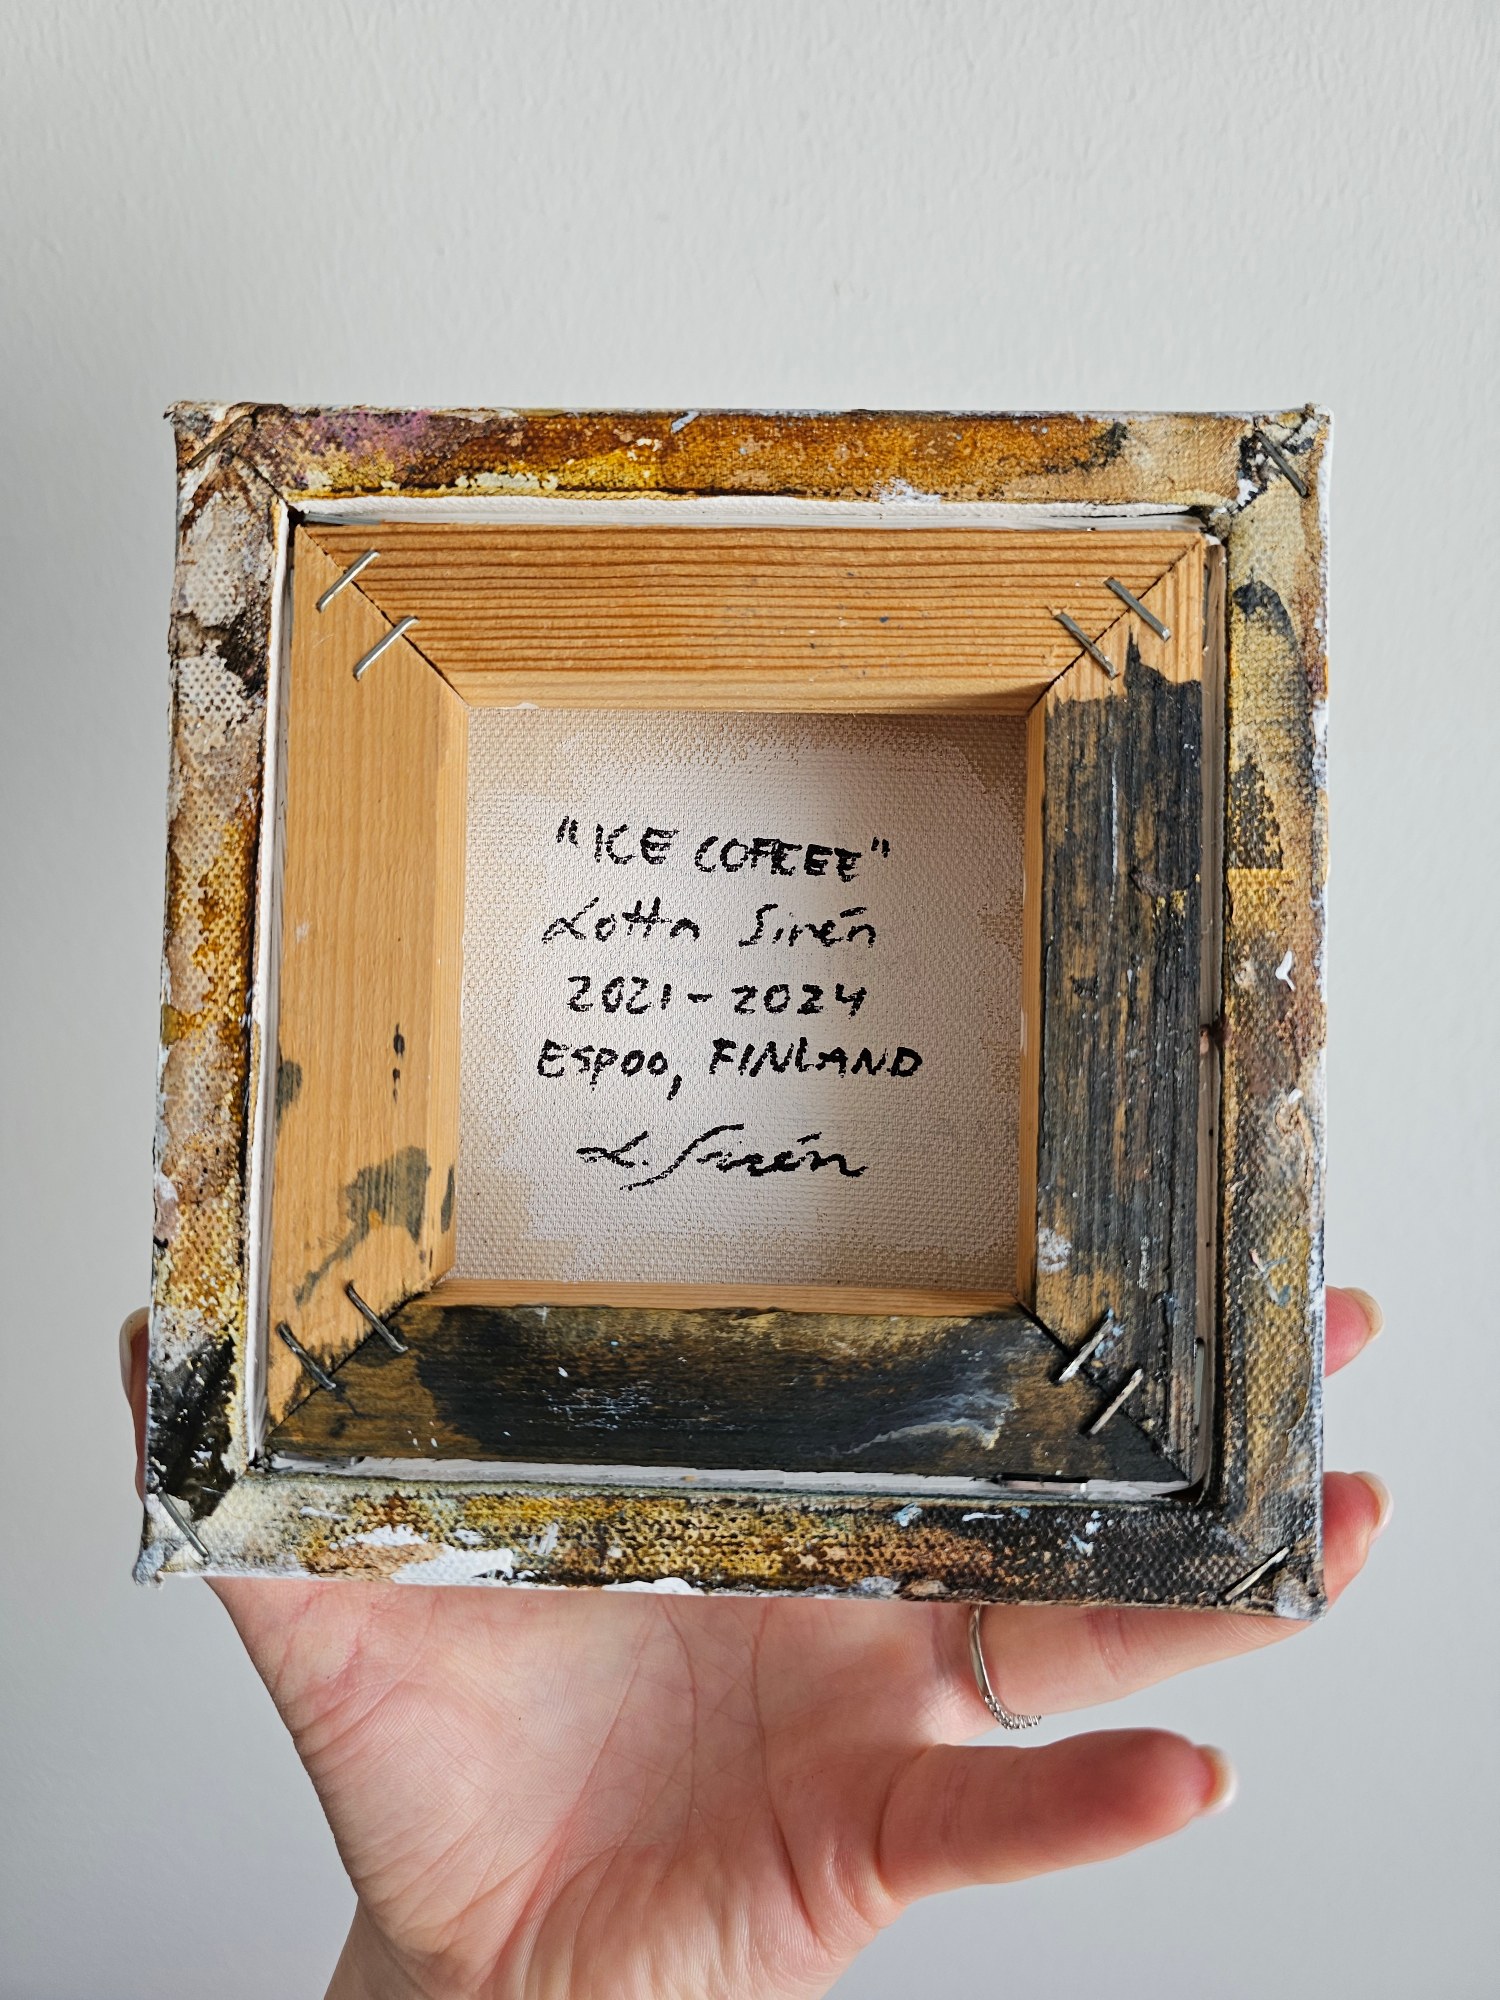 "ICE COFFEE"
Lotta Sirén
2021-2024
ESPOO, FINLAND
L. Sirén